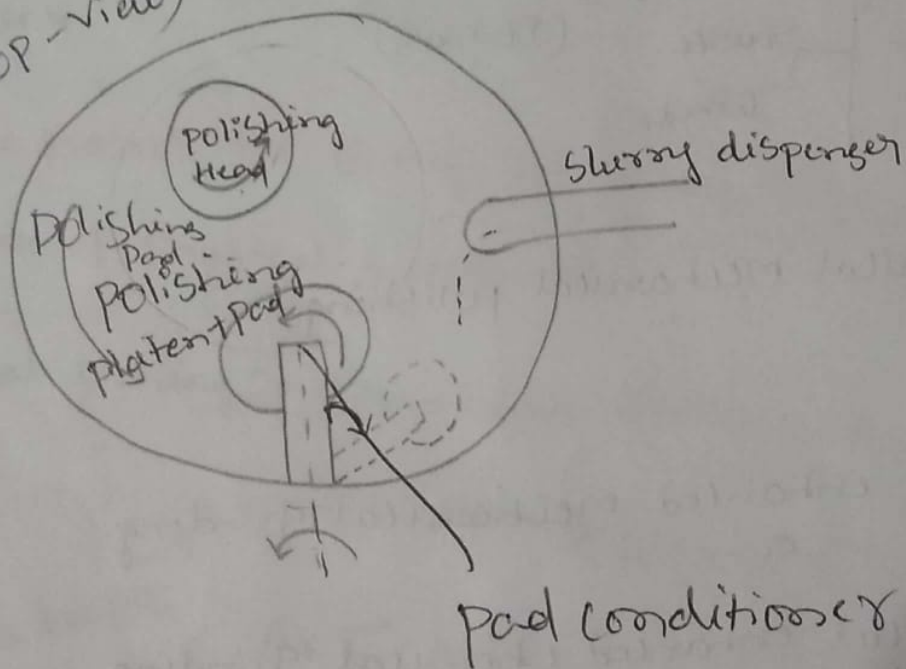 op-view)
polishing
Head
slurry dispenser
Polishing
Pad
Polishing
platen+Pad
pad conditioner